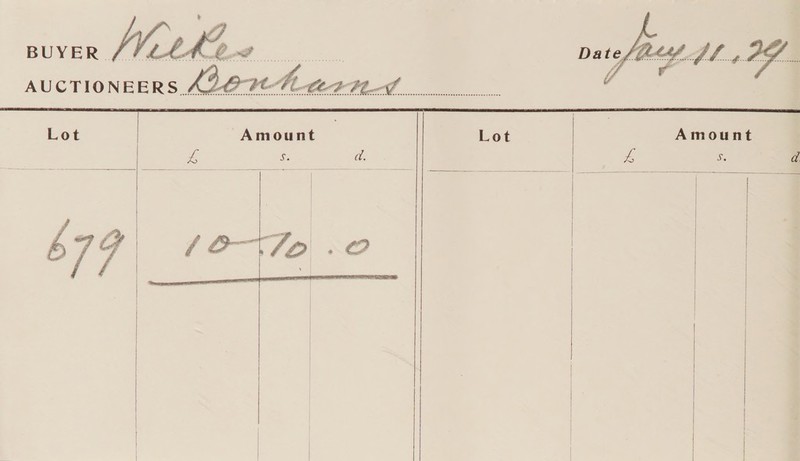 BUYER Wilkes Date Jany 11, 29
AUCTIONEERS Bonhams
Lot Amount Lot Amount
£ s. d. £ s. d.
679 10.10.0